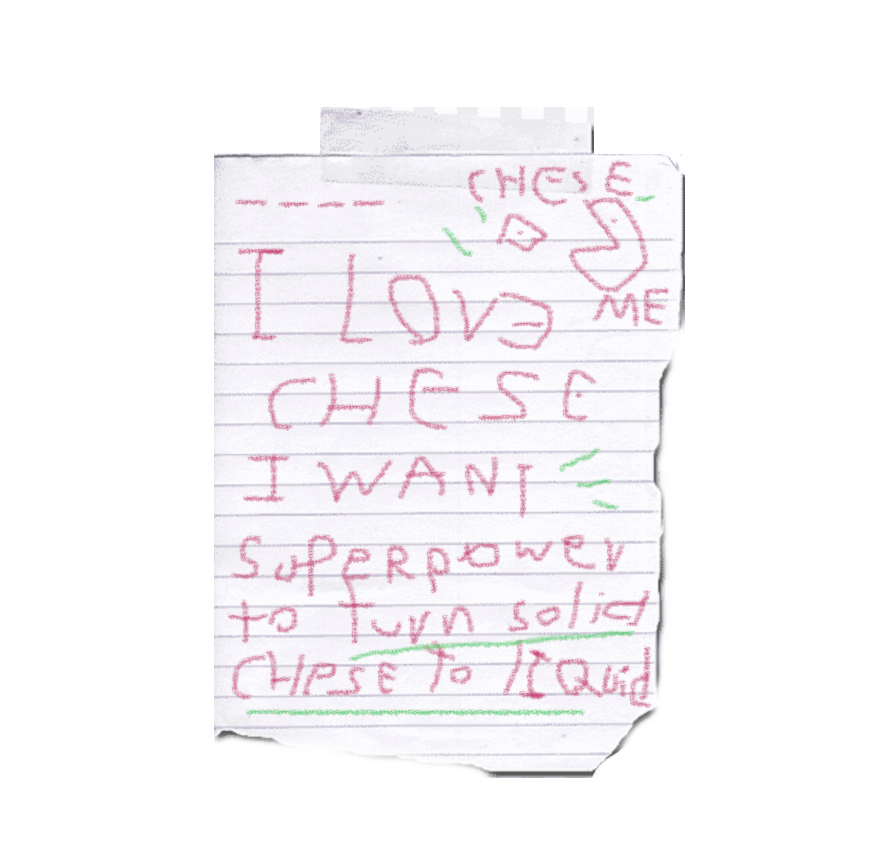 CHESE
ME
I LOVE
CHESE
I WANT
SuperpoweR
to turn solid
CHESE To lIQuid